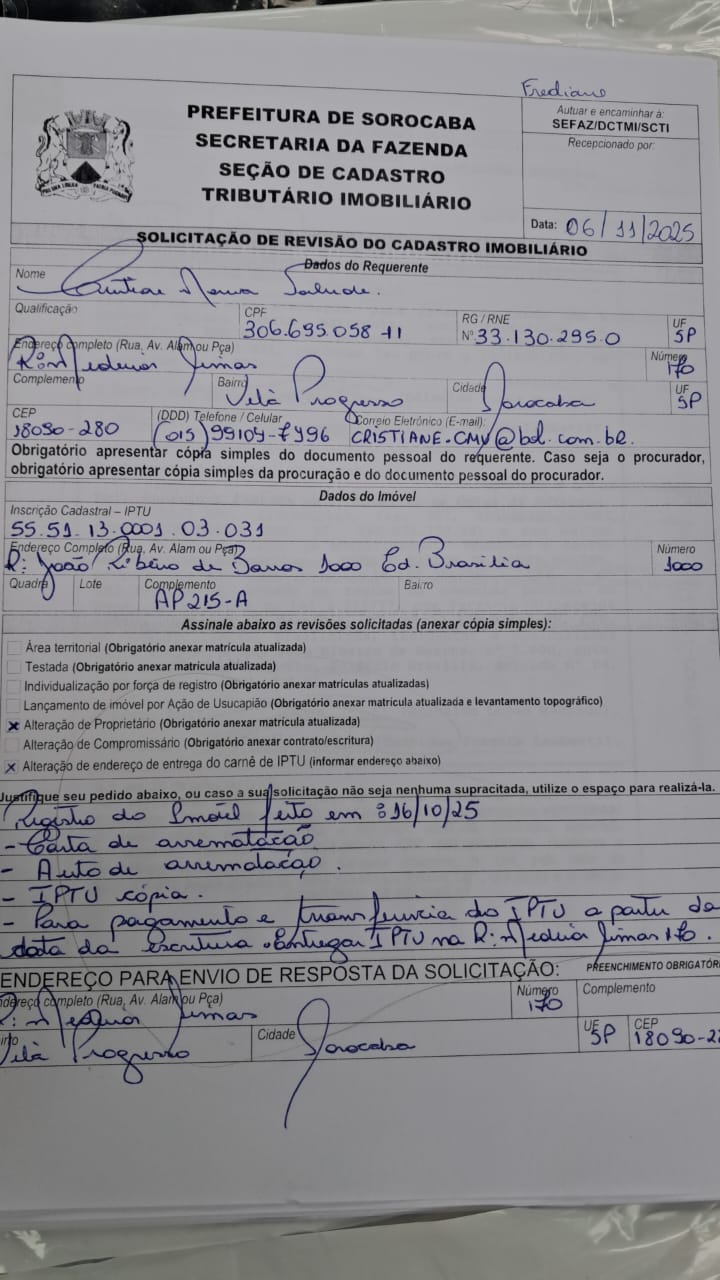 Frediano
PREFEITURA DE SOROCABA
SECRETARIA DA FAZENDA
SEÇÃO DE CADASTRO
TRIBUTÁRIO IMOBILIÁRIO
Autuar e encaminhar à:
SEFAZ/DCTMI/SCTI
Recepcionado por:
Data: 06/11/2025
SOLICITAÇÃO DE REVISÃO DO CADASTRO IMOBILIÁRIO
Dados do Requerente
Nome
Qualificação
CPF
306.695.058-11
RG / RNE
Nº 33.130.295.0
UF
SP
Endereço completo (Rua, Av. Alam ou Pça)
Número
170
Complemento
Bairro
Vila Progresso
Cidade
Sorocaba
UF
SP
CEP
18090-280
(DDD) Telefone / Celular
(015) 99109-7496
Correio Eletrônico (E-mail):
CRISTIANE.CMV@bol.com.br.
Obrigatório apresentar cópia simples do documento pessoal do requerente. Caso seja o procurador,
obrigatório apresentar cópia simples da procuração e do documento pessoal do procurador.
Dados do Imóvel
Inscrição Cadastral – IPTU
55.51.13.0001.03.031
Endereço Completo (Rua, Av. Alam ou Pça)
R: João Ribeiro de Barros 1000 Ed. Brasilia
Número
1000
Quadra
Lote
Complemento
AP 215-A
Bairro
Assinale abaixo as revisões solicitadas (anexar cópia simples):
Área territorial (Obrigatório anexar matrícula atualizada)
Testada (Obrigatório anexar matricula atualizada)
Individualização por força de registro (Obrigatório anexar matrículas atualizadas)
Lançamento de imóvel por Ação de Usucapião (Obrigatório anexar matrícula atualizada e levantamento topográfico)
x Alteração de Proprietário (Obrigatório anexar matrícula atualizada)
Alteração de Compromissário (Obrigatório anexar contrato/escritura)
x Alteração de endereço de entrega do carnê de IPTU (informar endereço abaixo)
Justifique seu pedido abaixo, ou caso a sua solicitação não seja nenhuma supracitada, utilize o espaço para realizá-la.
Registro do Imóvel feito em : 16/10/25
- Carta de arrematação
- Auto de arrematação.
- IPTU cópia.
- Para pagamento e transferência do IPTU a partir da
data da escritura. Entregar IPTU na R: 170.
ENDEREÇO PARA ENVIO DE RESPOSTA DA SOLICITAÇÃO: PREENCHIMENTO OBRIGATÓRI
ndereço completo (Rua, Av. Alam ou Pça)
Número
170
Complemento
irro
Vila Progresso
Cidade
Sorocaba
UF
SP
CEP
18090-28